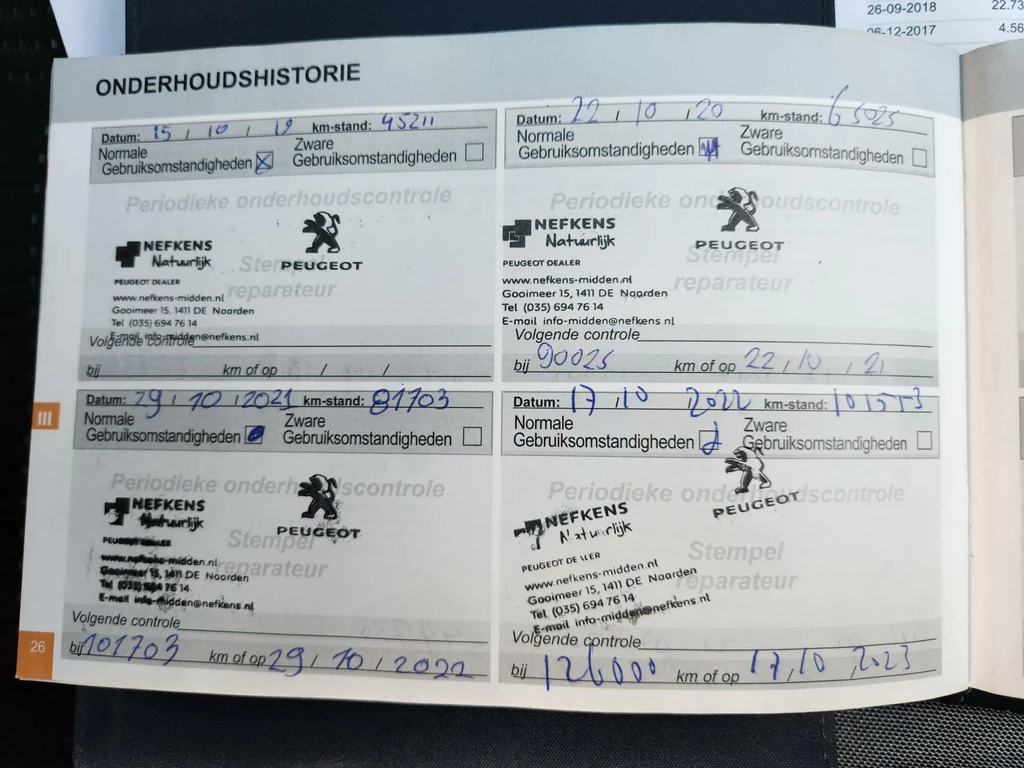 26-09-2018 22.73
06-12-2017 4.56
ONDERHOUDSHISTORIE
Datum: 15 / 10 / 19 km-stand: 45211
Normale
Gebruiksomstandigheden
Zware
Gebruiksomstandigheden
Periodieke onderhoudscontrole
NEFKENS
Natuurlijk
PEUGEOT
Stempel
reparateur
PEUGEOT DEALER
www.nefkens-midden.nl
Gooimeer 15, 1411 DE Naarden
Tel (035) 694 76 14
E-mail info-midden@nefkens.nl
Volgende controle
bij km of op / /
Datum: 22 / 10 / 20 km-stand: 65025
Normale
Gebruiksomstandigheden
Zware
Gebruiksomstandigheden
Periodieke onderhoudscontrole
NEFKENS
Natuurlijk
PEUGEOT
Stempel
reparateur
PEUGEOT DEALER
www.nefkens-midden.nl
Gooimeer 15, 1411 DE Naarden
Tel (035) 694 76 14
E-mail info-midden@nefkens.nl
Volgende controle
bij 90025 km of op 22 / 10 / 21
III
Datum: 29 / 10 / 2021 km-stand: 81703
Normale
Gebruiksomstandigheden
Zware
Gebruiksomstandigheden
Periodieke onderhoudscontrole
NEFKENS
Natuurlijk
PEUGEOT
Stempel
reparateur
PEUGEOT DEALER
www.nefkens-midden.nl
Gooimeer 15, 1411 DE Naarden
Tel (035) 694 76 14
E-mail info-midden@nefkens.nl
Volgende controle
bij 101703 km of op 29 / 10 / 2022
Datum: 17 / 10 / 2022 km-stand:
Normale
Gebruiksomstandigheden
Zware
Gebruiksomstandigheden
Periodieke onderhoudscontrole
NEFKENS
Natuurlijk
PEUGEOT
Stempel
reparateur
PEUGEOT DEALER
www.nefkens-midden.nl
Gooimeer 15, 1411 DE Naarden
Tel (035) 694 76 14
E-mail info-midden@nefkens.nl
Volgende controle
bij 126000 km of op 17 / 10 / 2023
26